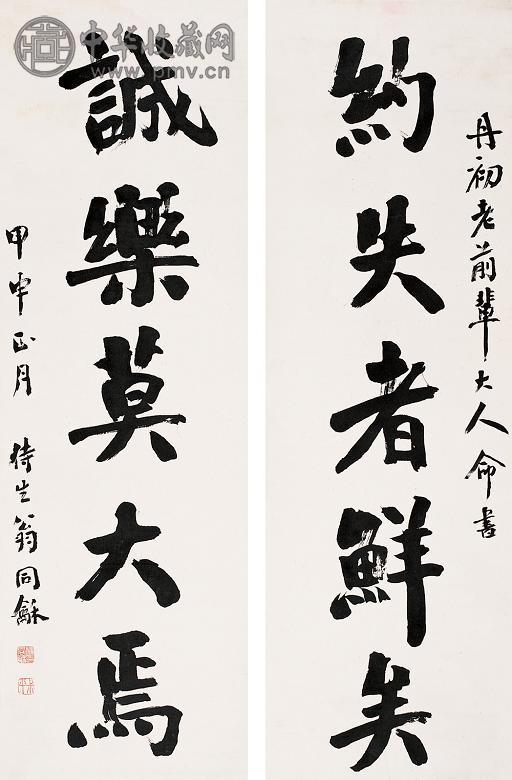 中华收藏网
www.pmv.cn
丹初老前輩大人命書
約失者鮮矣
誠樂莫大焉
甲申正月 侍生翁同龢